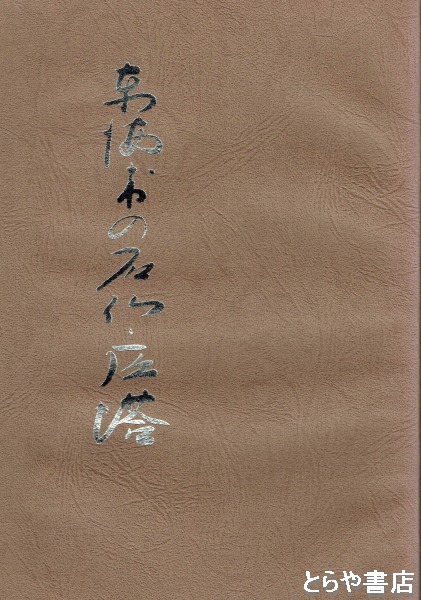 東海村の石仏・石塔
とらや書店